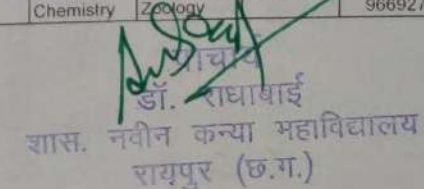 Chemistry Zoology 966927
प्राचार्य
डॉ. राधाबाई
शास. नवीन कन्या महाविद्यालय
रायपुर (छ.ग.)